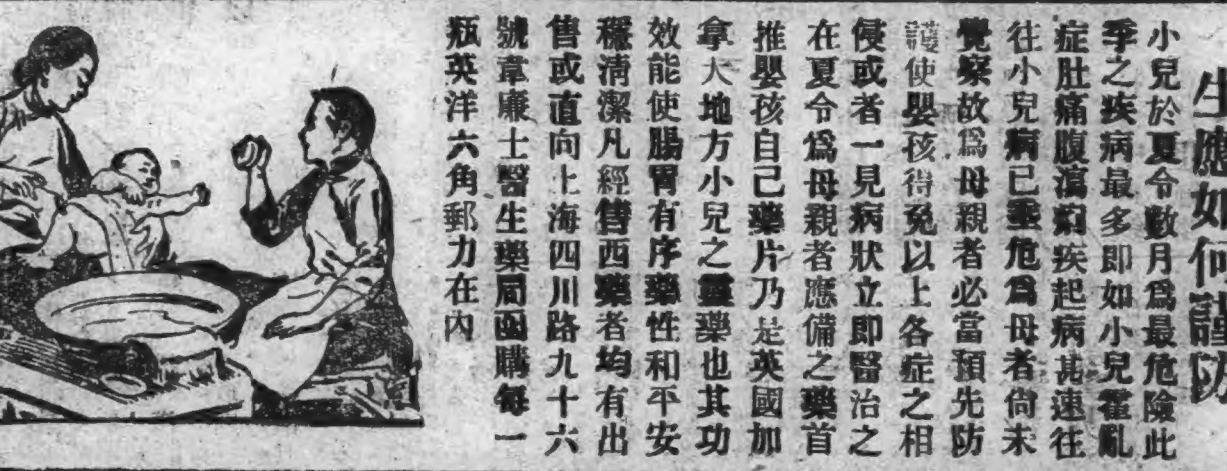 生應如何謹防
小兒於夏令數月爲最危險此
季之疾病最多即如小兒霍亂
症肚痛腹瀉痢疾起病甚速往
往小兒病已垂危爲母者尙未
覺察故爲母親者必當預先防
護使嬰孩得免以上各症之相
侵或者一見病狀立即醫治之
在夏令爲母親者應備之藥首
推嬰孩自己藥片乃是英國加
拿大地方小兒之靈藥也其功
效能使腸胃有序藥性和平安
穩淸潔凡經售西藥者均有出
售或直向上海四川路九十六
號韋廉士醫生藥局函購每一
瓶英洋六角郵力在內